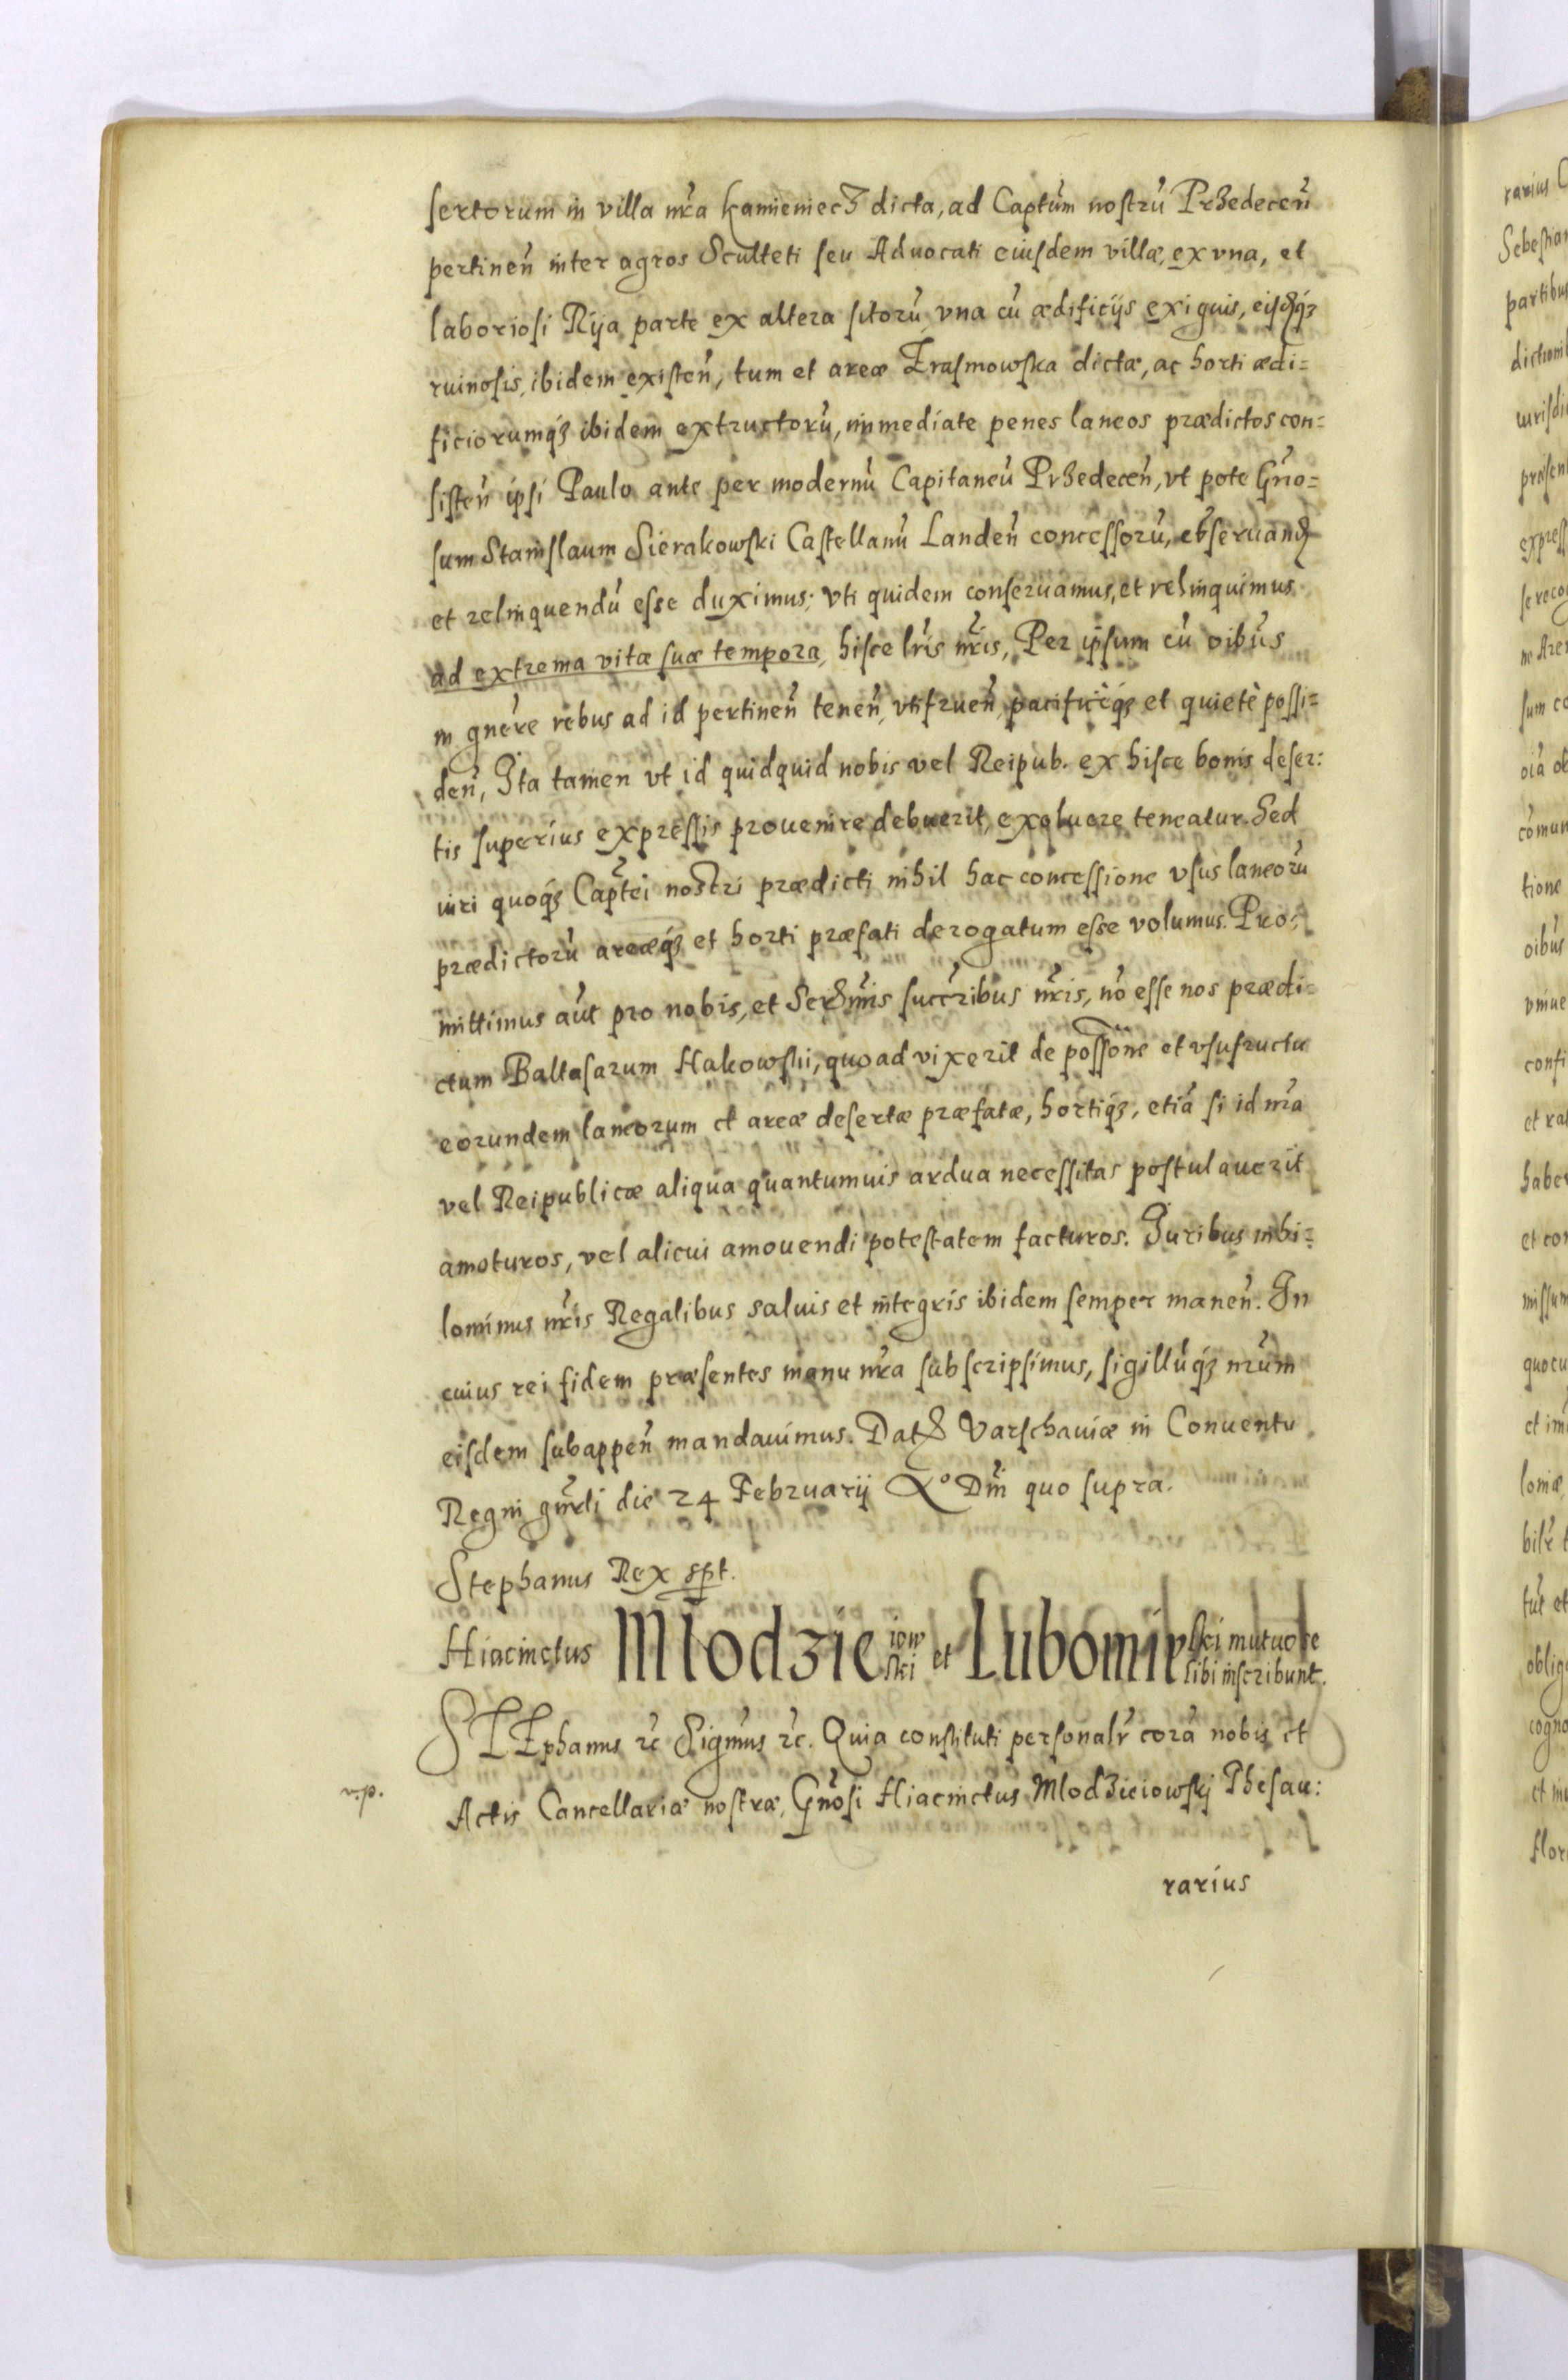 sertorum in villa nr̃a Kamieniecz dicta, ad Captũm nostrũ Przedeceñ
pertineñ inter agros Sculteti seu Aduocati eiusdem villæ, ex vna, et
laboriosi Rija parte ex altera sitorũ, vna cũ ædificijs exiguis, eisdꝫ
ruinosis, ibidem existeñ, tum et areæ Erasmowska dictæ, ac horti ædi=
ficiorumqꝫ ibidem extructorũ, immediate penes laneos prædictos con=
sisteñ ipsi Paulo ante per modernũ Capitaneũ Przedeceñ, vt pote Gño=
sum Stanislaum Sierakowski Castellanũ Landeñ concessorũ, obseruand
et relinquendũ esse duximus; vti quidem conseruamus, et relinquimus
ad extrema vitæ suæ tempora, hisce lr̃is nr̃is, Per ip̃sum cũ oĩbus
in gnẽre rebus ad id pertineñ teneñ, vtifrueñ, pacificèqꝫ et quietè possi=
deñ, Ita tamen vt id quidquid nobis vel Reipub. ex hisce bonis deser:
tis superius expressis prouenire debuerit, exoluere teneatur. Sed
iuri quoqꝫ Captẽi nostri prædicti nihil hac concessione vsus laneorũ
prædictorũ areæqꝫ et horti præfati derogatum esse volumus. Pro:
mittimus aũt pro nobis, et Serẽmis succr̃ibus nr̃is, nõ esse nos prædi=
ctum Baltasarum Hakowski, quoad vixerit de possõne et vsufructu
eorundem laneorum et areæ desertæ præfatæ, hortiqꝫ, etiã si id nr̃a
vel Reipublicæ aliqua quantumuis ardua necessitas postulauerit
amoturos, vel alicui amouendi potestatem facturos. Iuribus nihi=
lominus nr̃is Regalibus saluis et integris ibidem semper maneñ. In
cuius rei fidem præsentes manu nr̃a subscripsimus, sigillũqꝫ nr̃um
eisdem subappeñ mandauimus. Dat Varschauiæ in Conuentu
Regni gnr̃li die 24 Februarij Aº Dñi quo supra.
Stephanus Rex spt.
Hiacinctus Mlodzieiowski et Lubomirski mutuo se sibi inscribunt.
STEphanus ꝛc Sigñmus ꝛc. Quia constituti personalr̃ corã nobis et
r.p.
Actis Cancellariæ nostræ, Gñosi Hiacinctus Mlodzieiowskj Thesau:
rarius